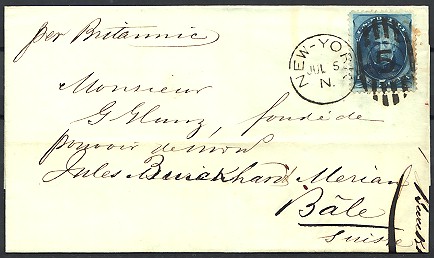 per Britannic
NEW-YORK
JUL 5
N.
Monsieur
G Glunz, fondé de
pouvoir de
Jules Burckhard Merian
Bâle
Suisse